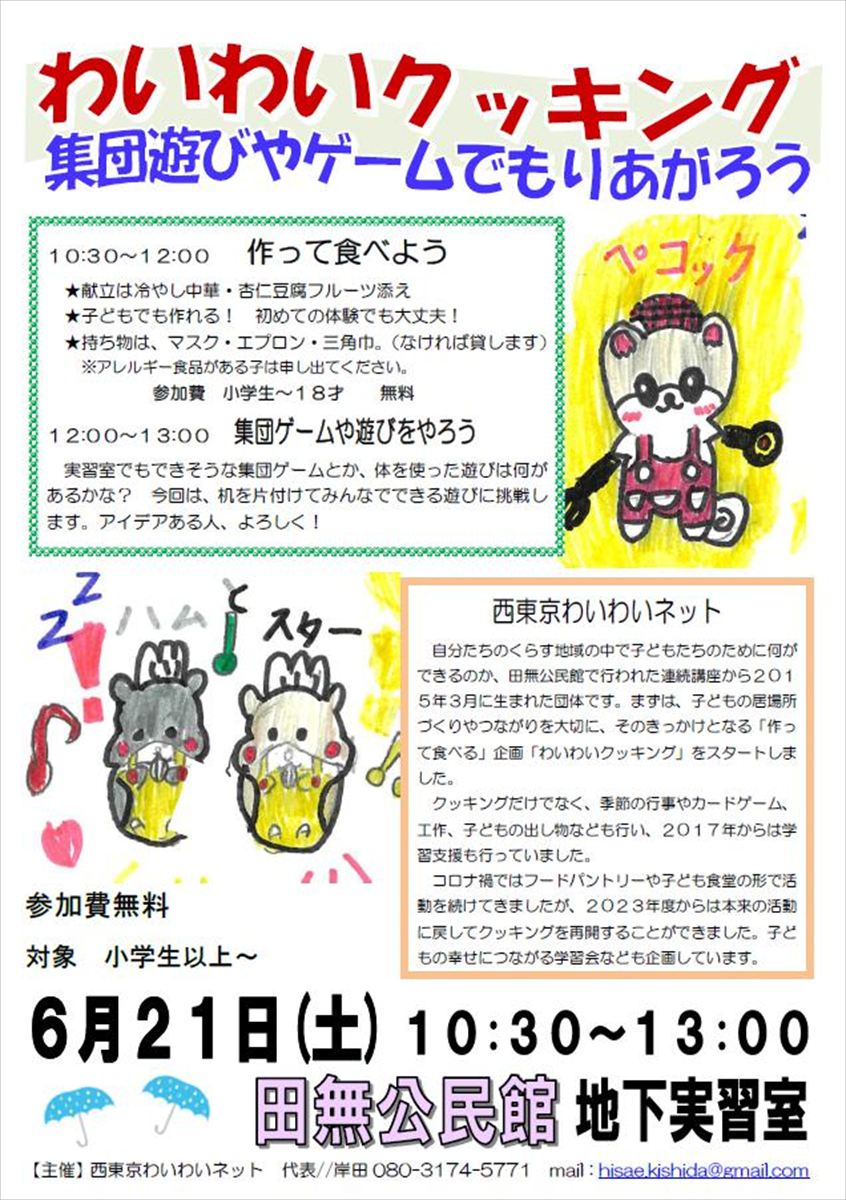 わいわいクッキング
集団遊びやゲームでもりあがろう
10:30～12:00　作って食べよう
★献立は冷やし中華・杏仁豆腐フルーツ添え
★子どもでも作れる！　初めての体験でも大丈夫！
★持ち物は、マスク・エプロン・三角巾。（なければ貸します）
※アレルギー食品がある子は申し出てください。
参加費　小学生～18才　無料
12:00～13:00　集団ゲームや遊びをやろう
実習室でもできそうな集団ゲームとか、体を使った遊びは何が
あるかな？　今回は、机を片付けてみんなでできる遊びに挑戦し
ます。アイデアある人、よろしく！
ペコック
zzz
ハムとスター
西東京わいわいネット
自分たちのくらす地域の中で子どもたちのために何が
できるのか、田無公民館で行われた連続講座から201
5年3月に生まれた団体です。まずは、子どもの居場所
づくりやつながりを大切に、そのきっかけとなる「作っ
て食べる」企画「わいわいクッキング」をスタートしま
した。
クッキングだけでなく、季節の行事やカードゲーム、
工作、子どもの出し物なども行い、2017年からは学
習支援も行っていました。
コロナ禍ではフードパントリーや子ども食堂の形で活
動を続けてきましたが、2023年度からは本来の活動
に戻してクッキングを再開することができました。子ど
もの幸せにつながる学習会なども企画しています。
参加費無料
対象　小学生以上～
6月21日(土) 10:30～13:00
田無公民館 地下実習室
【主催】西東京わいわいネット　代表//岸田 080-3174-5771　mail：hisae.kishida@gmail.com